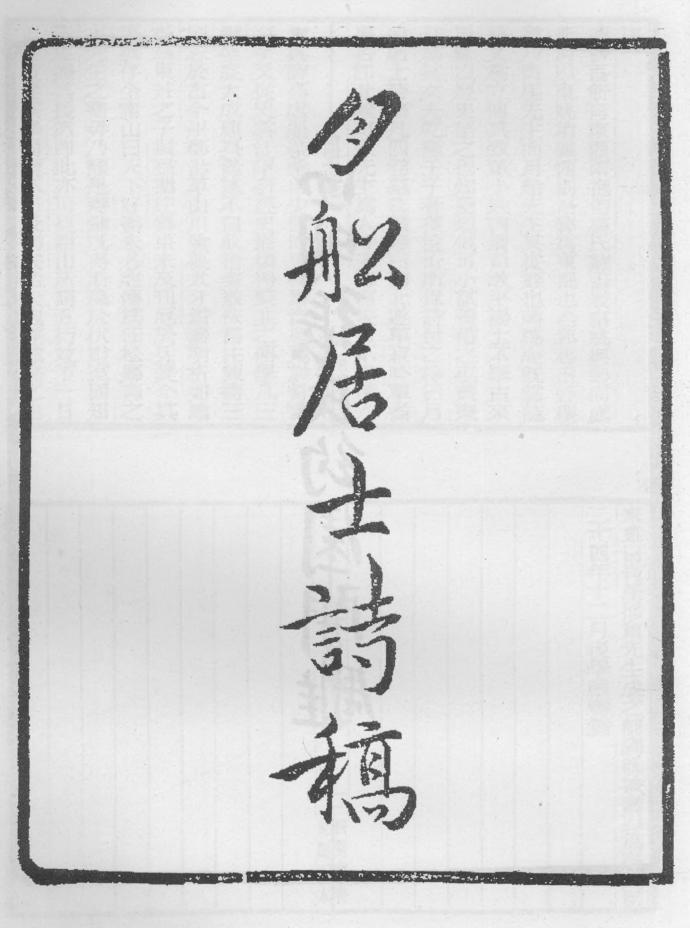 夕船居士詩稿